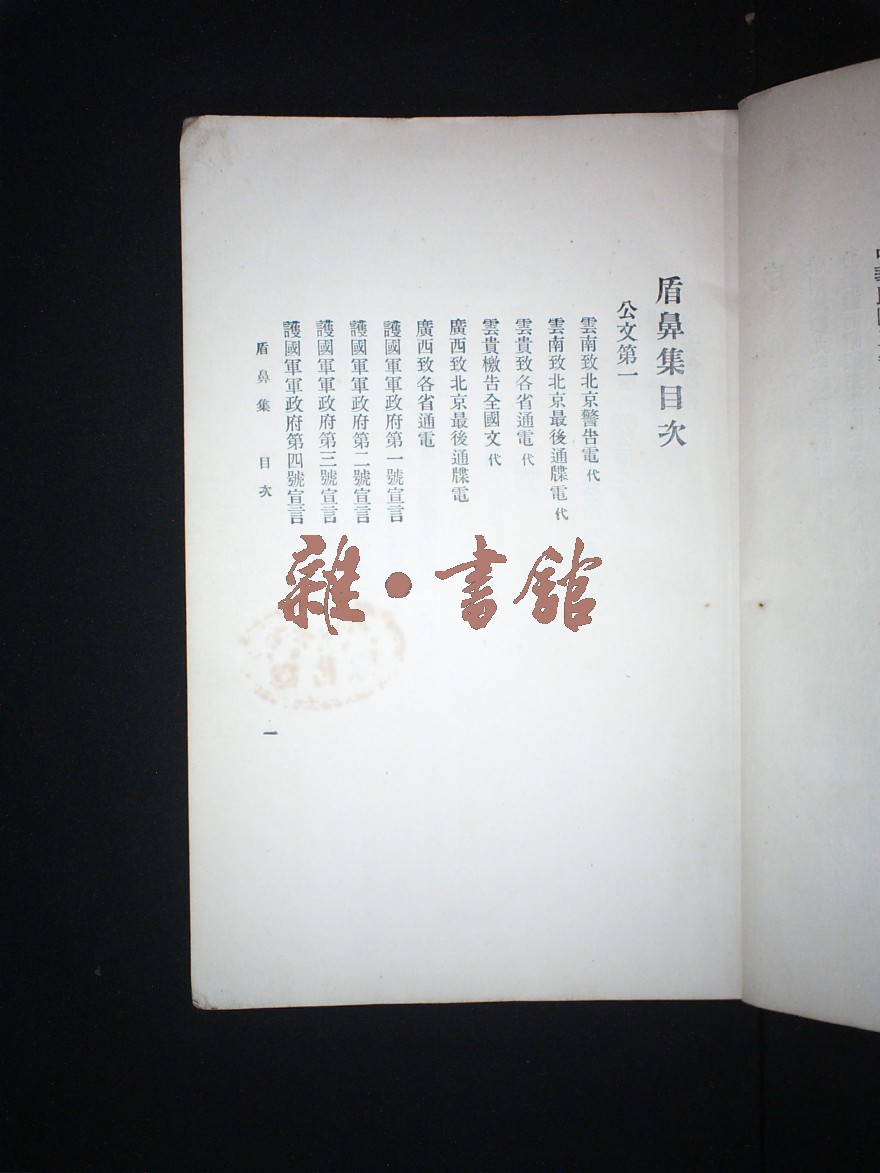 盾鼻集目次
公文第一
雲南致北京警告電 代
雲南致北京最後通牒電 代
雲貴致各省通電 代
雲貴檄告全國文 代
廣西致北京最後通牒電
廣西致各省通電
護國軍軍政府第一號宣言
護國軍軍政府第二號宣言
護國軍軍政府第三號宣言
護國軍軍政府第四號宣言
盾鼻集 目次
一
雜•書館